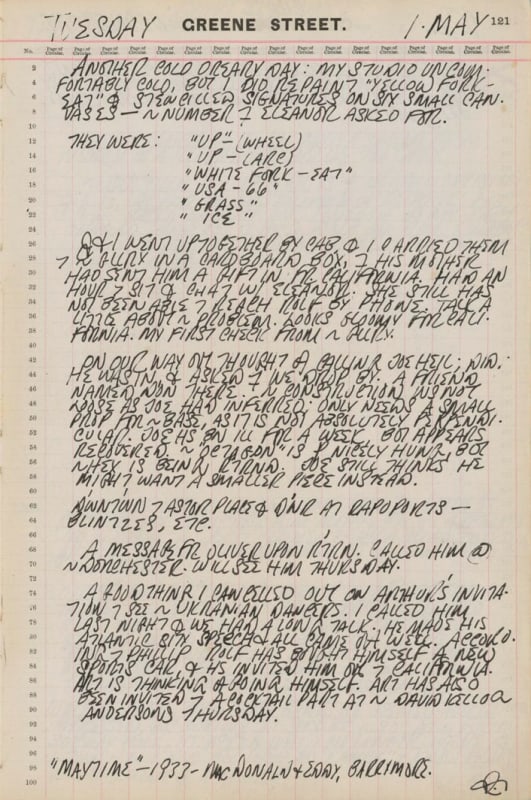 TUESDAY GREENE STREET. 1·MAY 121
ANOTHER COLD DREARY DAY: MY STUDIO UNCOM-
FORTABLY COLD, BUT I DID REPAINT "YELLOW FORK-
EAT" & STENCILLED SIGNATURES ON SIX SMALL CAN-
VASES — ~ NUMBER 7 ELEANOR ASKED FOR.
THEY WERE: "UP" – (WHEEL)
"UP – (ARC)
"WHITE FORK – EAT"
"USA – 66"
"GRASS"
"ICE"
I WENT UPTOGETHER BY CAB & I CARRIED THEM
7 ~ GLLRY IN A CARDBOARD BOX, 7 HIS MOTHER
HAD SENT HIM A GIFT IN FR CALIFORNIA. HAD AN
HOUR 7 SIT & CHAT W/ ELEANOR. SHE STILL HAS
NOT BEEN ABLE 7 REACH ROLF BY PHONE. TALK A
LITTLE ABOUT ~ PROBLEM. LOOKS GLOOMY FOR CALI-
FORNIA. MY FIRST CHECK FROM ~ GLLRY.
ON OUR WAY OUT THOUGHT OF CALLING JOE HEIL; DID.
HE WAS IN & ASKED 7 WE DROP BY. A FRIEND
NAMED DON THERE. ~ CONSTRUCTION IS NOT
LOOSE AS JOE HAD INFERRED; ONLY NEEDS A SMALL
PROP FOR ~ BASE, AS IT IS NOT ABSOLUTELY PERPENDI-
CULAR. JOE HS BN ILL FOR A WEEK BUT APPEARS
RECOVERED. ~ "OCTAGON" IS NICELY HUNG, BUT
~ HEX IS BEING RTRND. JOE STILL THINKS HE
MIGHT WANT A SMALLER PIECE INSTEAD.
DWNTWN 7 ASTOR PLACE & DNR AT RAPOPORTS —
BLINTZES, ETC.
A MESSAGE FR OLIVER UPON RTRN. CALLED HIM @
~ DORCHESTER. WILL SEE HIM THURSDAY.
A GOOD THING I CANCELLED OUT ON ARTHUR'S INVITA-
TION 7 SEE ~ UKRANIAN DANCERS. I CALLED HIM
LAST NIGHT & WE HAD A LONG TALK. HE MADE HIS
ATLANTIC CITY SPEECH & ALL CAME OFF WELL. ACCORD-
ING 7 PHILIP, ROLF HAS BOUGHT HIMSELF A NEW
SPORTS CAR & HS INVITED HIM OUT 7 CALIFORNIA.
ART IS THINKING OF GOING HIMSELF. ART HAS ALSO
BEEN INVITED 7 A COCKTAIL PART AT ~ DAVID KELLOG
ANDERSONS THURSDAY.
"MAYTIME" – 1933 – MAC DONALD & EDDY, BARRIMORE.